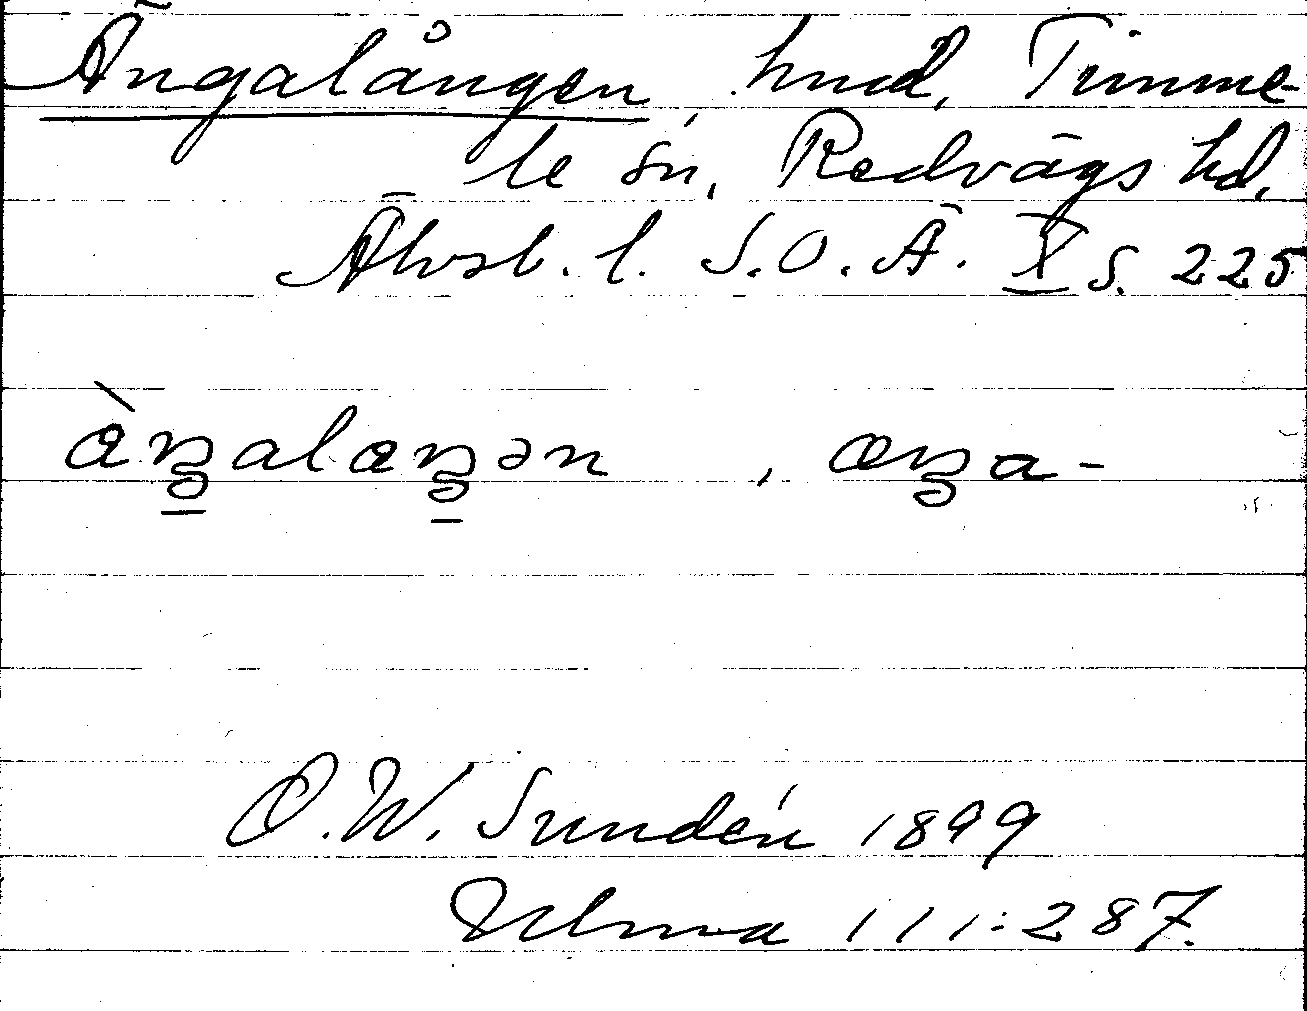 Ängalången, hmd, Timme-
le sn, Redvägs hd,
Älvsb. l. S.O.Ä. X s. 225
æ̀ŋalaŋən , æŋa-
O.W. Sundén 1899
Ulma 111:287.